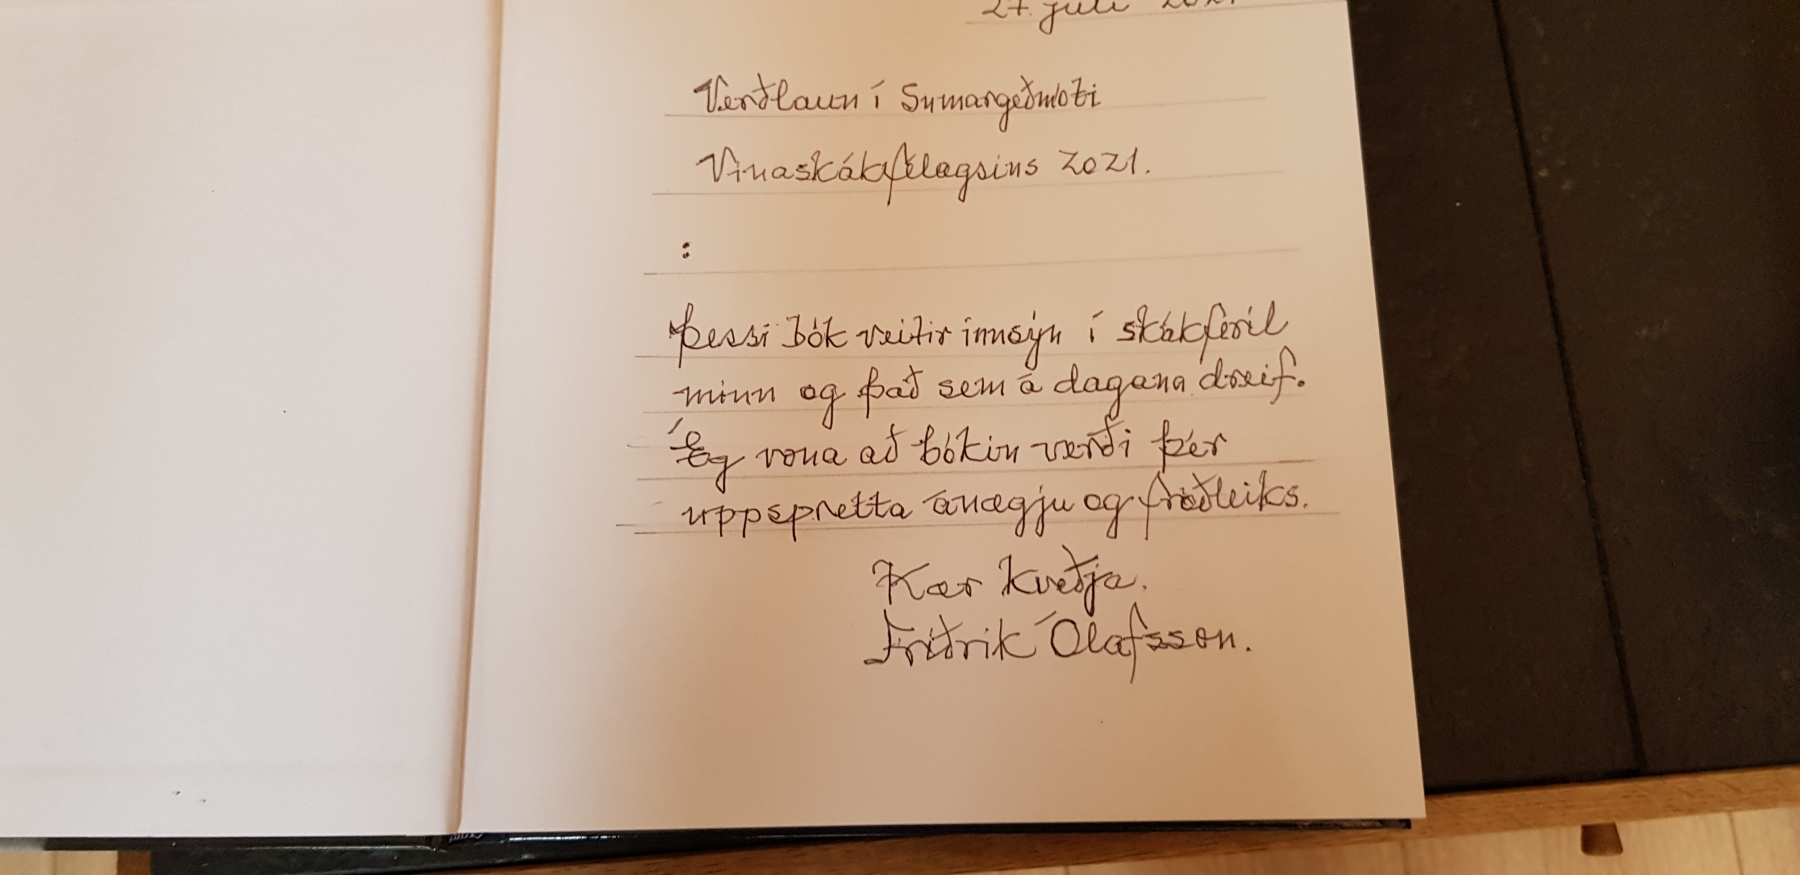 27. júlí 2021
Verðlaun í Sumargeðmóti
Vinaskákfélagsins 2021.
:
Þessi bók veitir innsýn í skákferil
minn og það sem á dagana dreif.
Ég vona að bókin verði þér
uppspretta ánægju og fróðleiks.
Kær kveðja.
Friðrik Ólafsson.